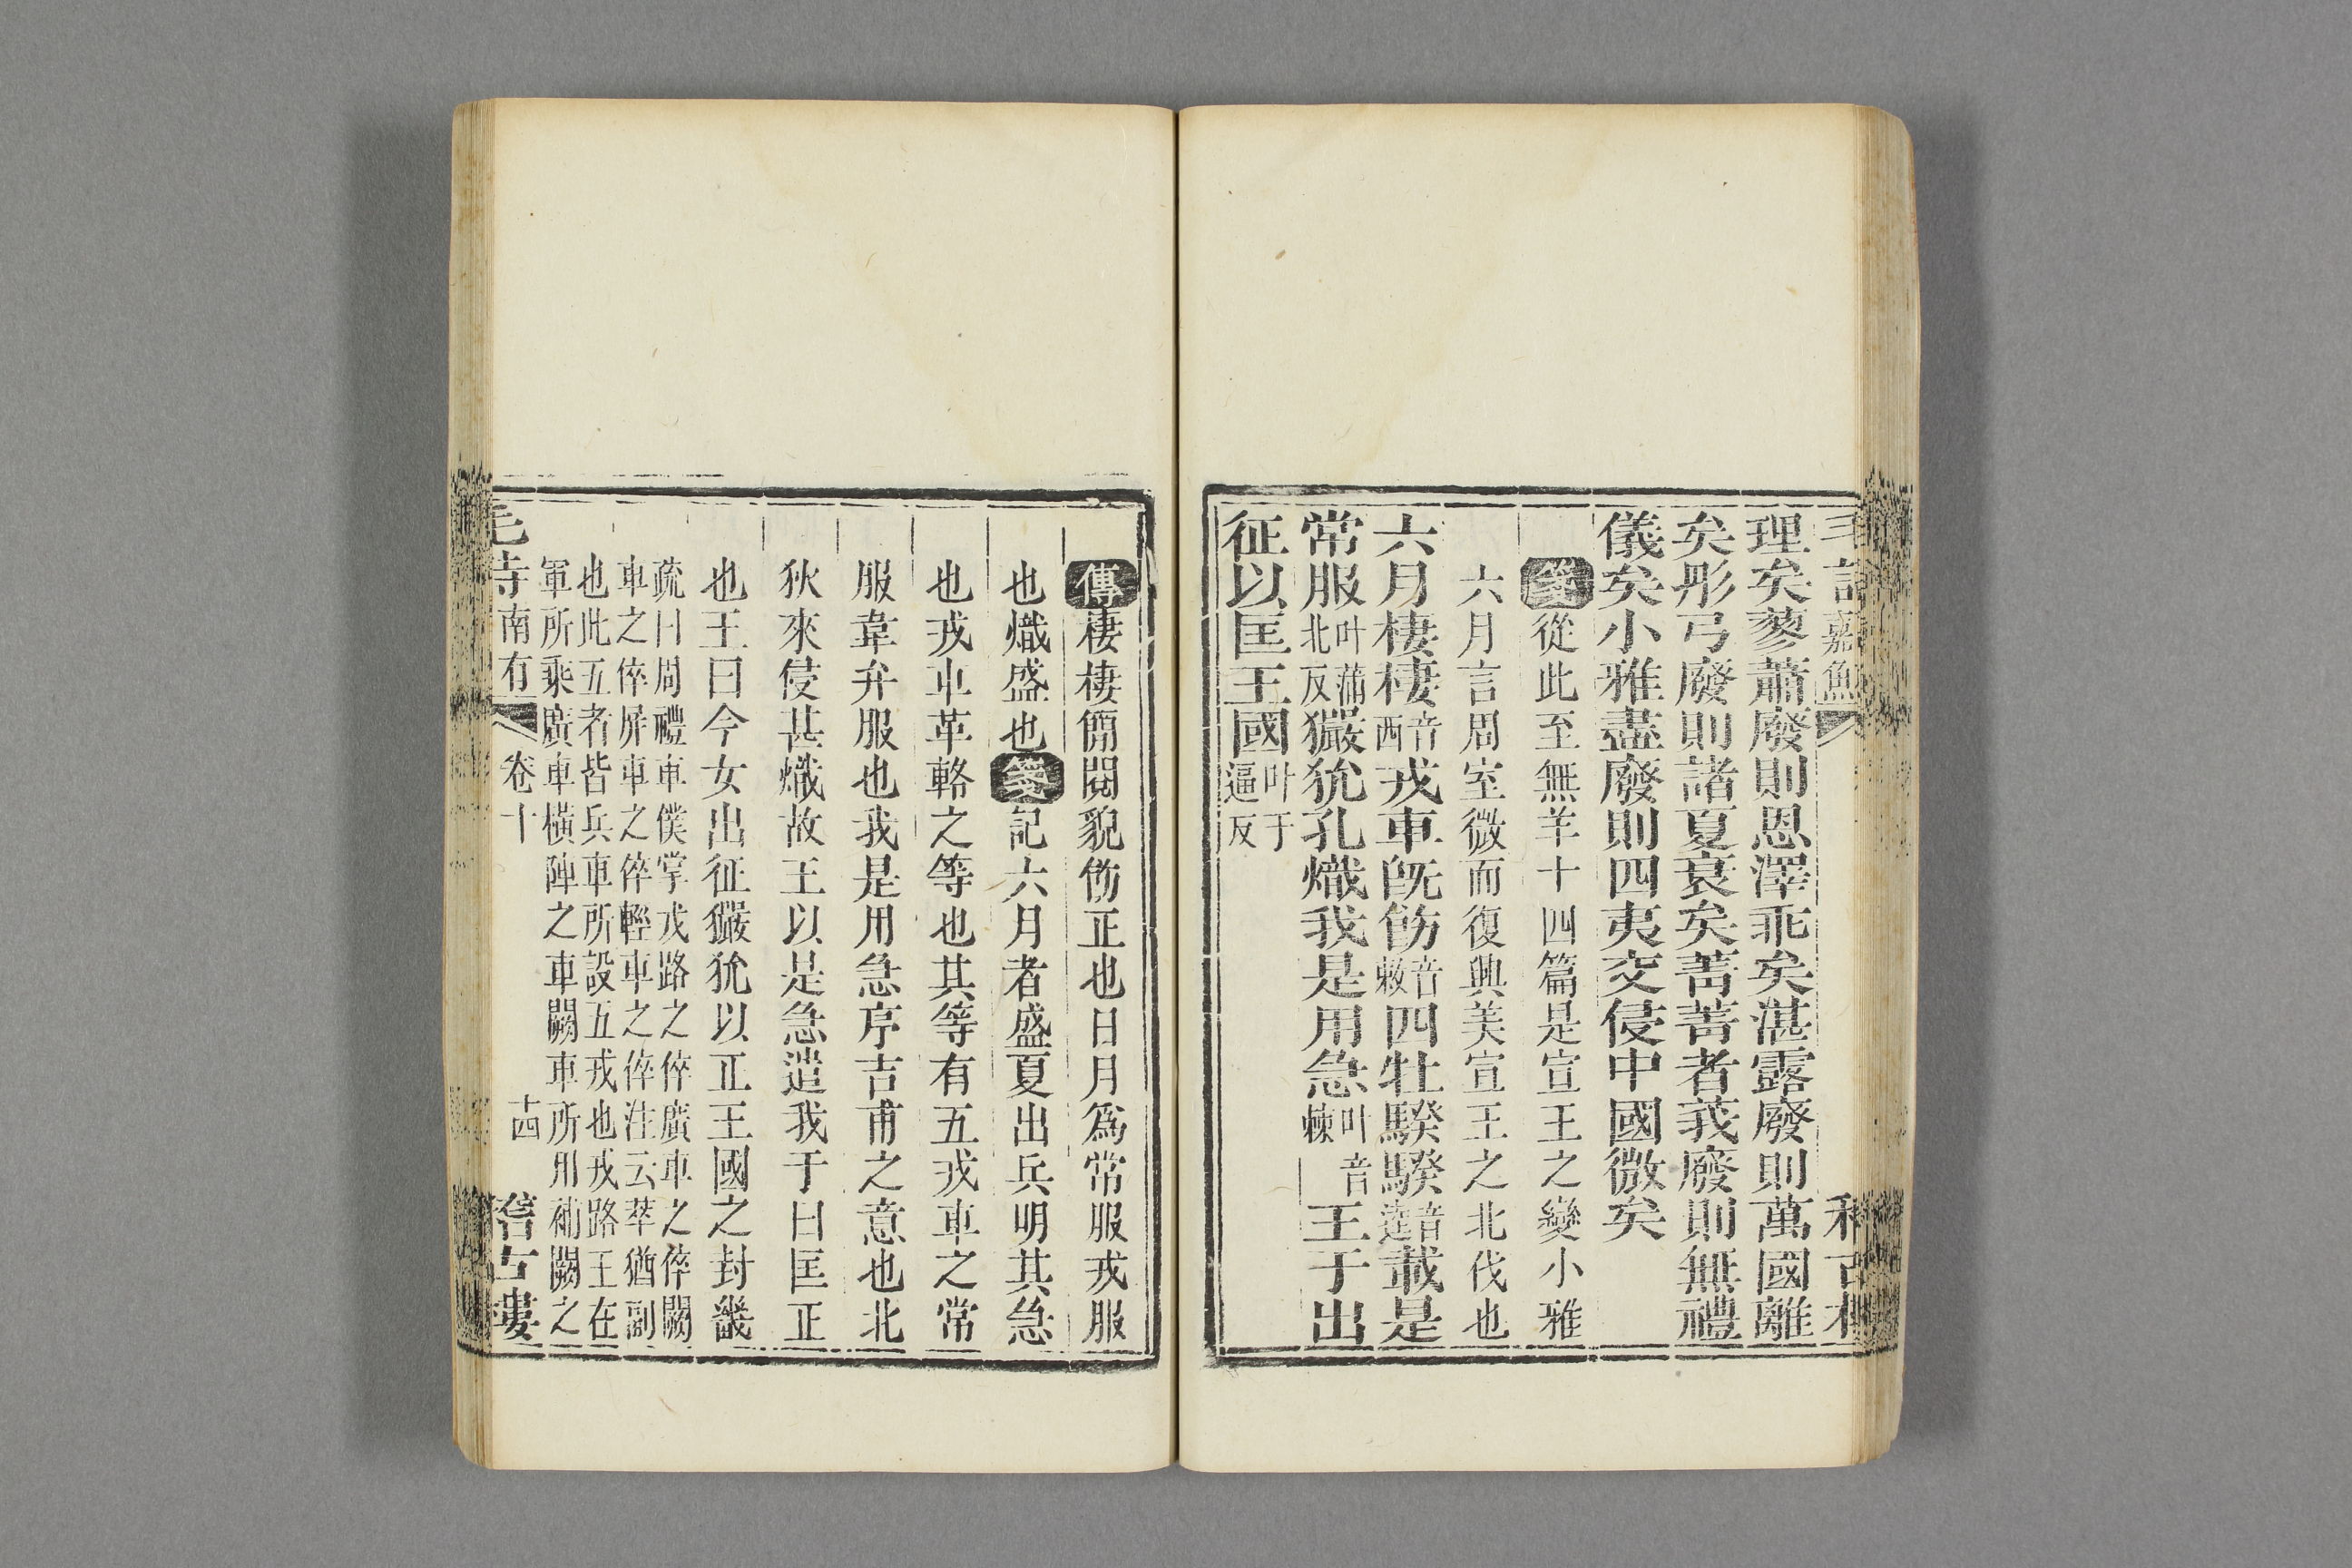 理矣蓼蕭廢則恩澤乖矣湛露廢則萬國離
矣彤弓廢則諸夏衰矣菁菁者莪廢則無禮
儀矣小雅盡廢則四夷交侵中國微矣
箋從此至無羊十四篇是宣王之變小雅
六月言周室微而復興美宣王之北伐也
六月棲棲音西戎車既飭音敕四牡騤騤音逵載是
常服叶蒲北反玁狁孔熾我是用急叶音棘王于出
征以匡王國叶于逼反
傳棲棲簡閱貌飭正也日月為常服戎服
也熾盛也箋記六月者盛夏出兵明其急
也戎車革輅之等也其等有五戎車之常
服韋弁服也我是用急序吉甫之意也北
狄來侵甚熾故王以是急遣我于曰匡正
也王曰今女出征玁狁以正王國之封畿
疏曰周禮車僕掌戎路之倅廣車之倅闕
車之倅屏車之倅輕車之倅注云萃猶副
也此五者皆兵車所設五戎也戎路王在
軍所乘廣車橫陣之車闕車所用補闕之
南有 卷十 十四